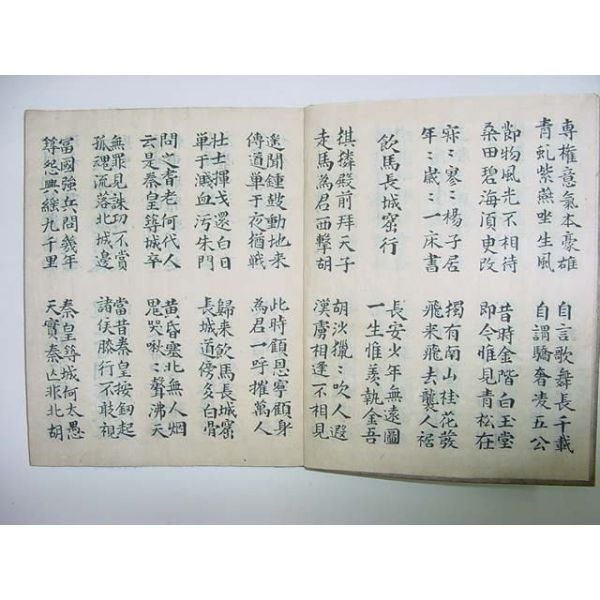 專權意氣本豪雄
青虬紫燕坐生風
自言歌舞長千載
自謂驕奢凌五公
節物風光不相待
桑田碧海須臾改
昔時金階白玉堂
即今惟見青松在
寂〻寥〻楊子居
年〻歲〻一床書
獨有南山桂花發
飛来飛去襲人裾
飲馬長城窟行
長安少年無遠圖
一生惟羨執金吾
麟殿前拜天子
走馬為君西擊胡
胡沙獵〻吹人遐
漢虜相逢不相見
遙聞鍾鼓動地来
傳道单于夜猶戦
此時顧恩寧顧身
為君一呼摧萬人
壮士揮戈還白日
单于濺血污朱門
歸来飲馬長城窟
長城道傍多白骨
問之耆老何代人
云是秦皇築城卒
黄昏塞北無人烟
鬼哭啾〻聲沸天
無罪見誅功不賞
孤魂流落北城邊
當昔秦皇按劒起
諸侯膝行不敢視
富國強兵問幾年
築怨興徭九千里
秦皇築城何太愚
天實秦亡非北胡